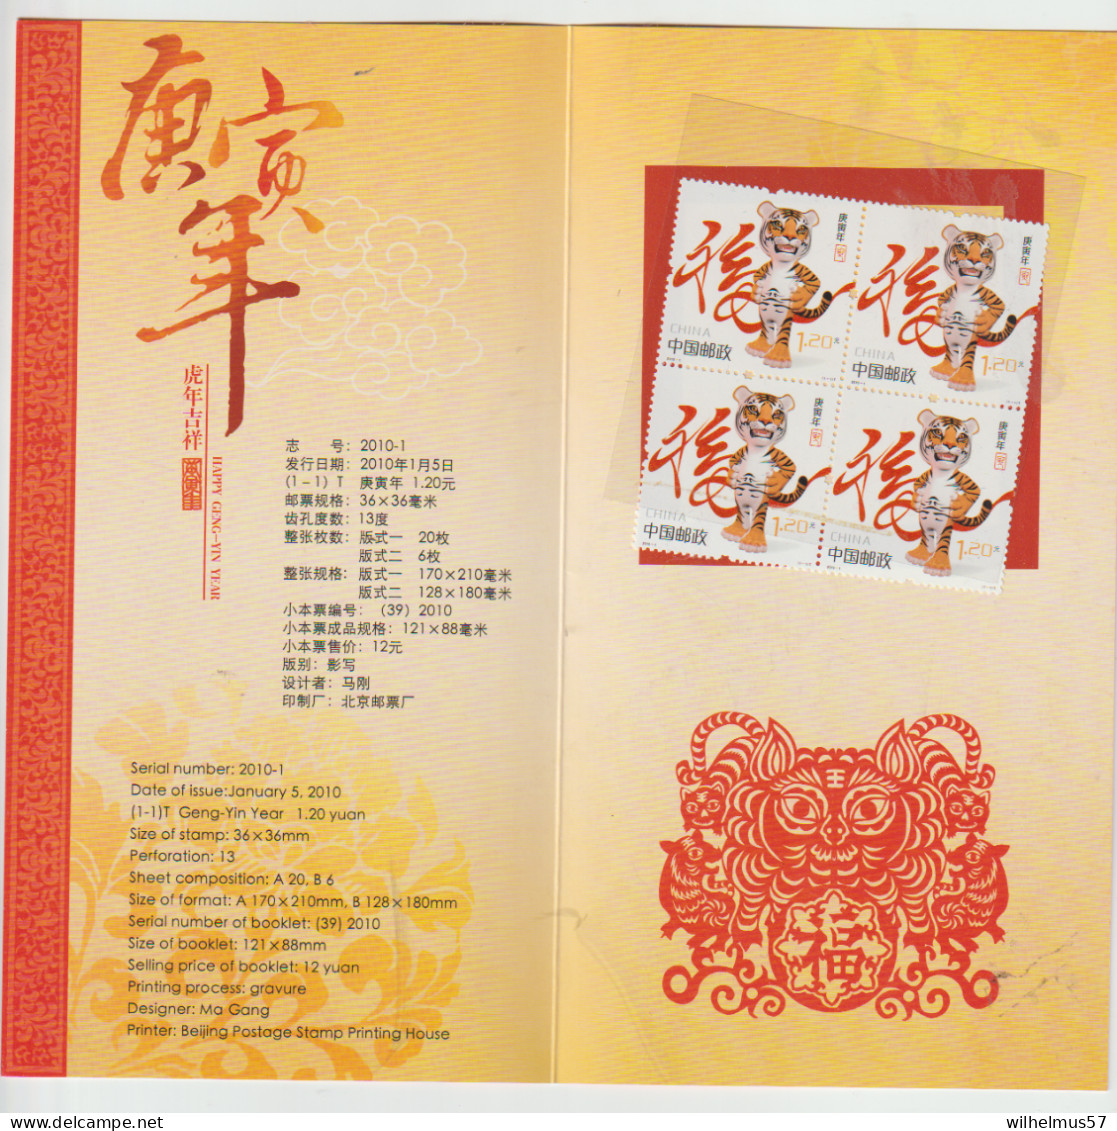 庚寅年
虎年吉祥
HAPPY GENG-YIN YEAR
志 号：2010-1
发行日期：2010年1月5日
(1-1) T 庚寅年 1.20元
邮票规格：36×36毫米
齿孔度数：13度
整张枚数：版式一 20枚
版式二 6枚
整张规格：版式一 170×210毫米
版式二 128×180毫米
小本票编号：(39) 2010
小本票成品规格：121×88毫米
小本票售价：12元
版别：影写
设计者：马刚
印制厂：北京邮票厂
Serial number: 2010-1
Date of issue:January 5, 2010
(1-1)T Geng-Yin Year 1.20 yuan
Size of stamp: 36×36mm
Perforation: 13
Sheet composition: A 20, B 6
Size of format: A 170×210mm, B 128×180mm
Serial number of booklet: (39) 2010
Size of booklet: 121×88mm
Selling price of booklet: 12 yuan
Printing process: gravure
Designer: Ma Gang
Printer: Beijing Postage Stamp Printing House
福
庚寅年
CHINA
中国邮政
1.20元
福
庚寅年
CHINA
中国邮政
1.20元
福
庚寅年
CHINA
中国邮政
1.20元
福
庚寅年
CHINA
中国邮政
1.20元
王
福
wilhelmus57